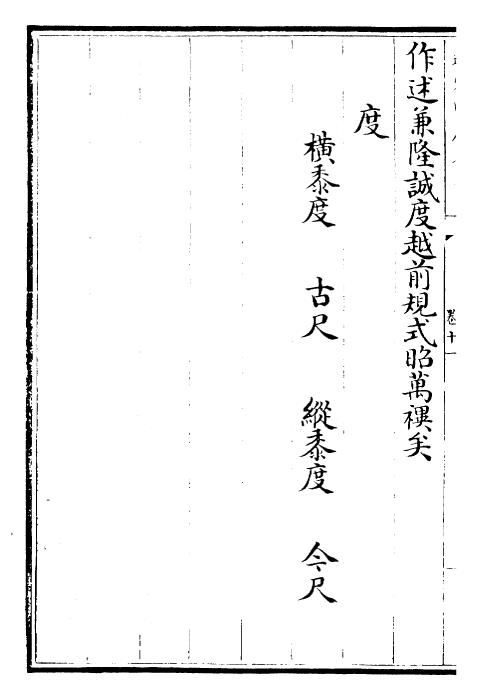 作述兼隆誠度越前規式昭萬禩矣
度
橫黍度 古尺 縱黍度 今尺
卷十一